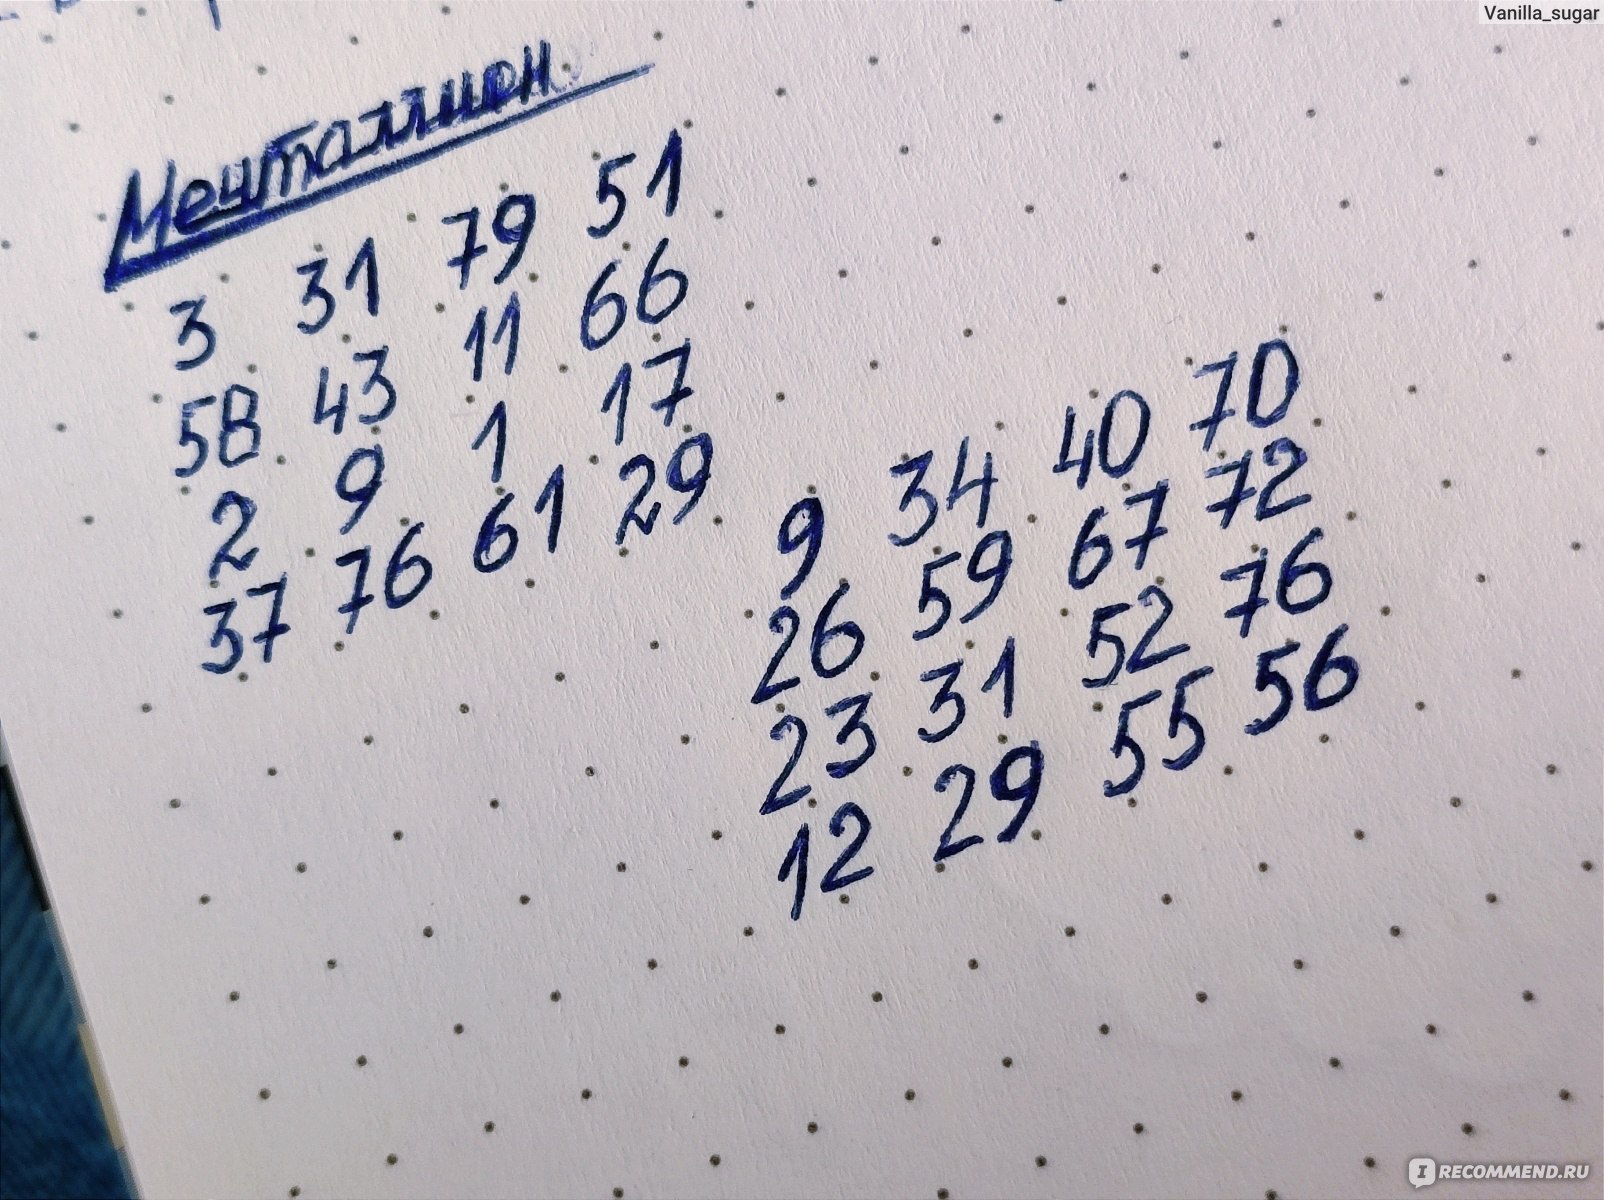 Vanilla_sugar
Мечталлион
3 31 79 51
58 43 11 66
2 9 1 17
37 76 61 29
9 34 40 70
26 59 67 72
23 31 52 76
12 29 55 56
IRECOMMEND.RU